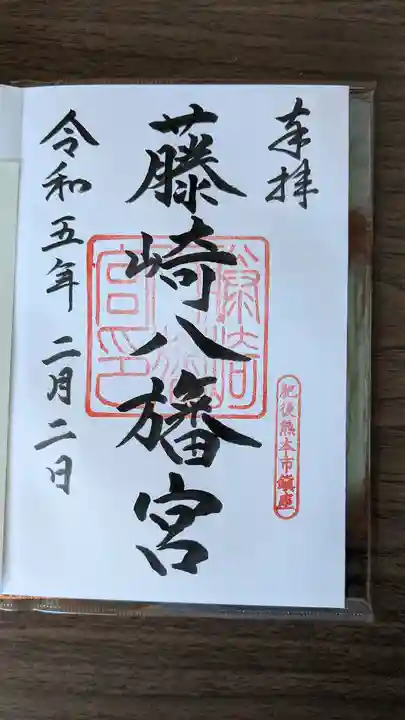 奉拝
肥後熊本市鎮座
藤崎八旛宮
令和五年二月二日